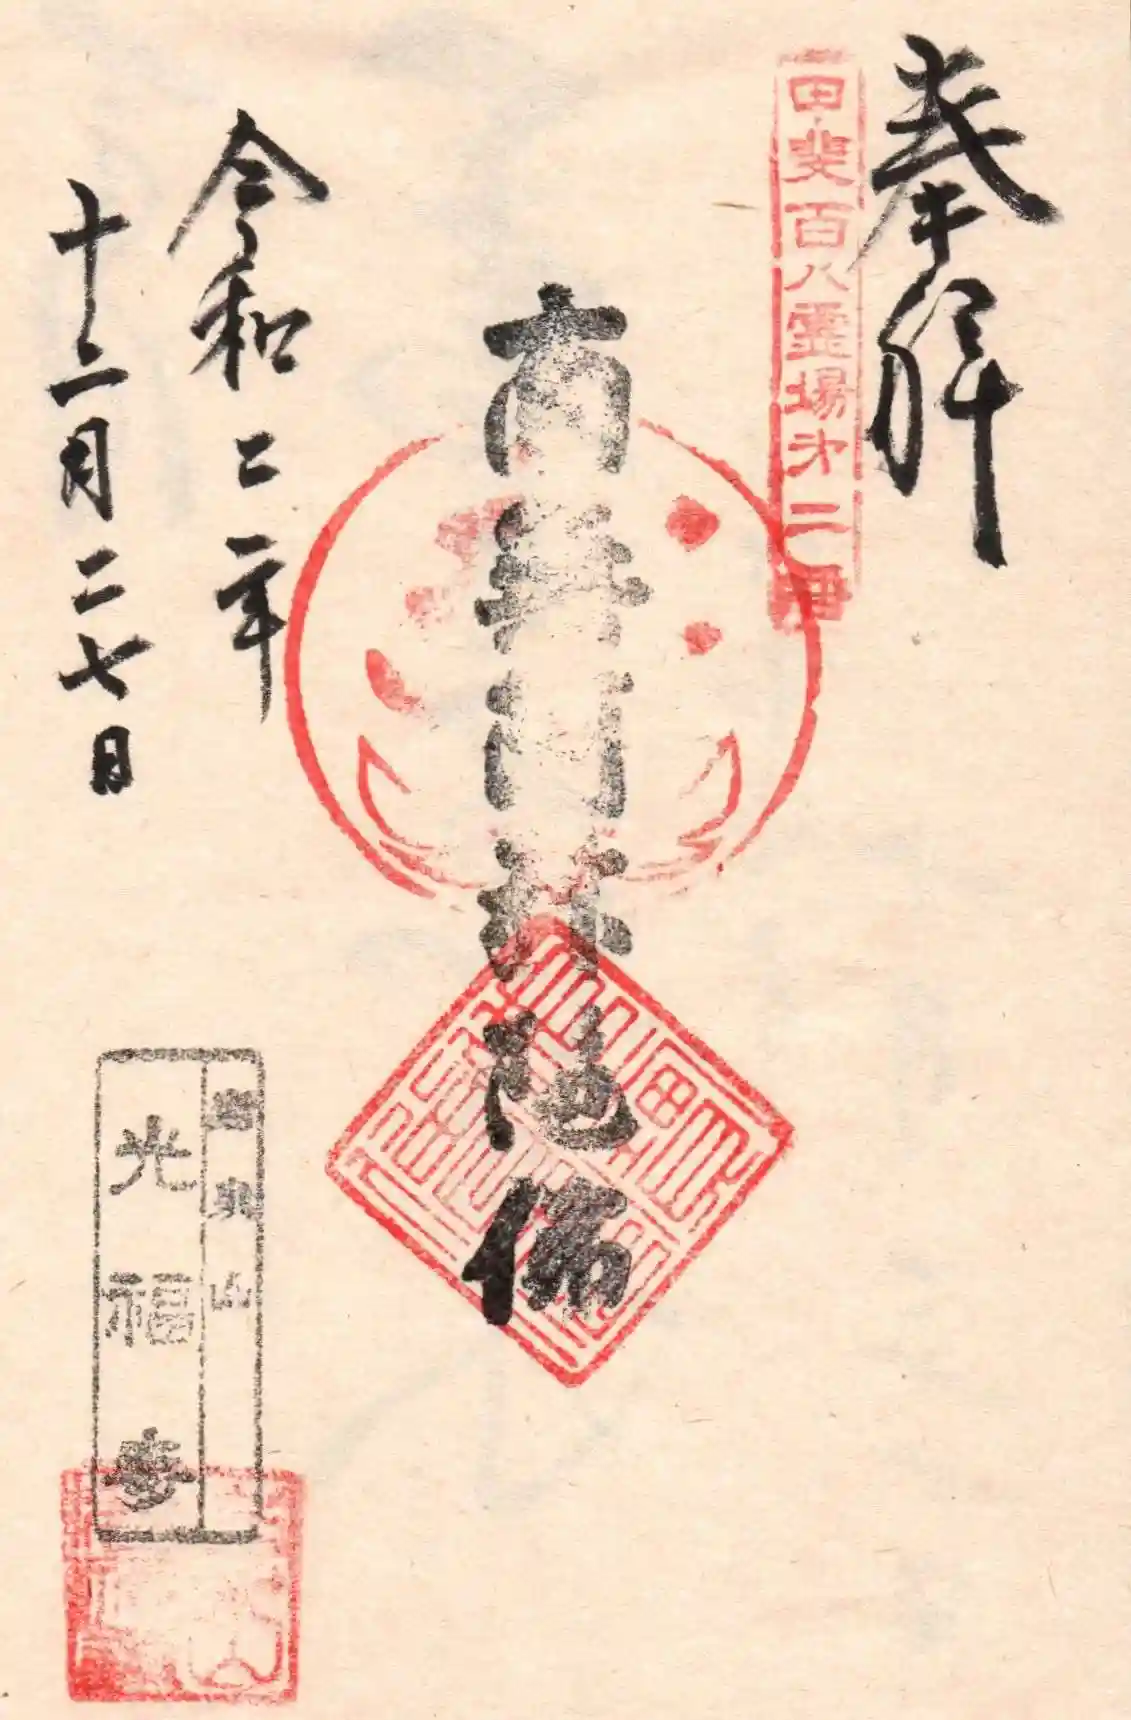 奉拝
甲斐百八霊場第二番
南無阿弥陀佛
令和二年
十二月二七日
光福寺